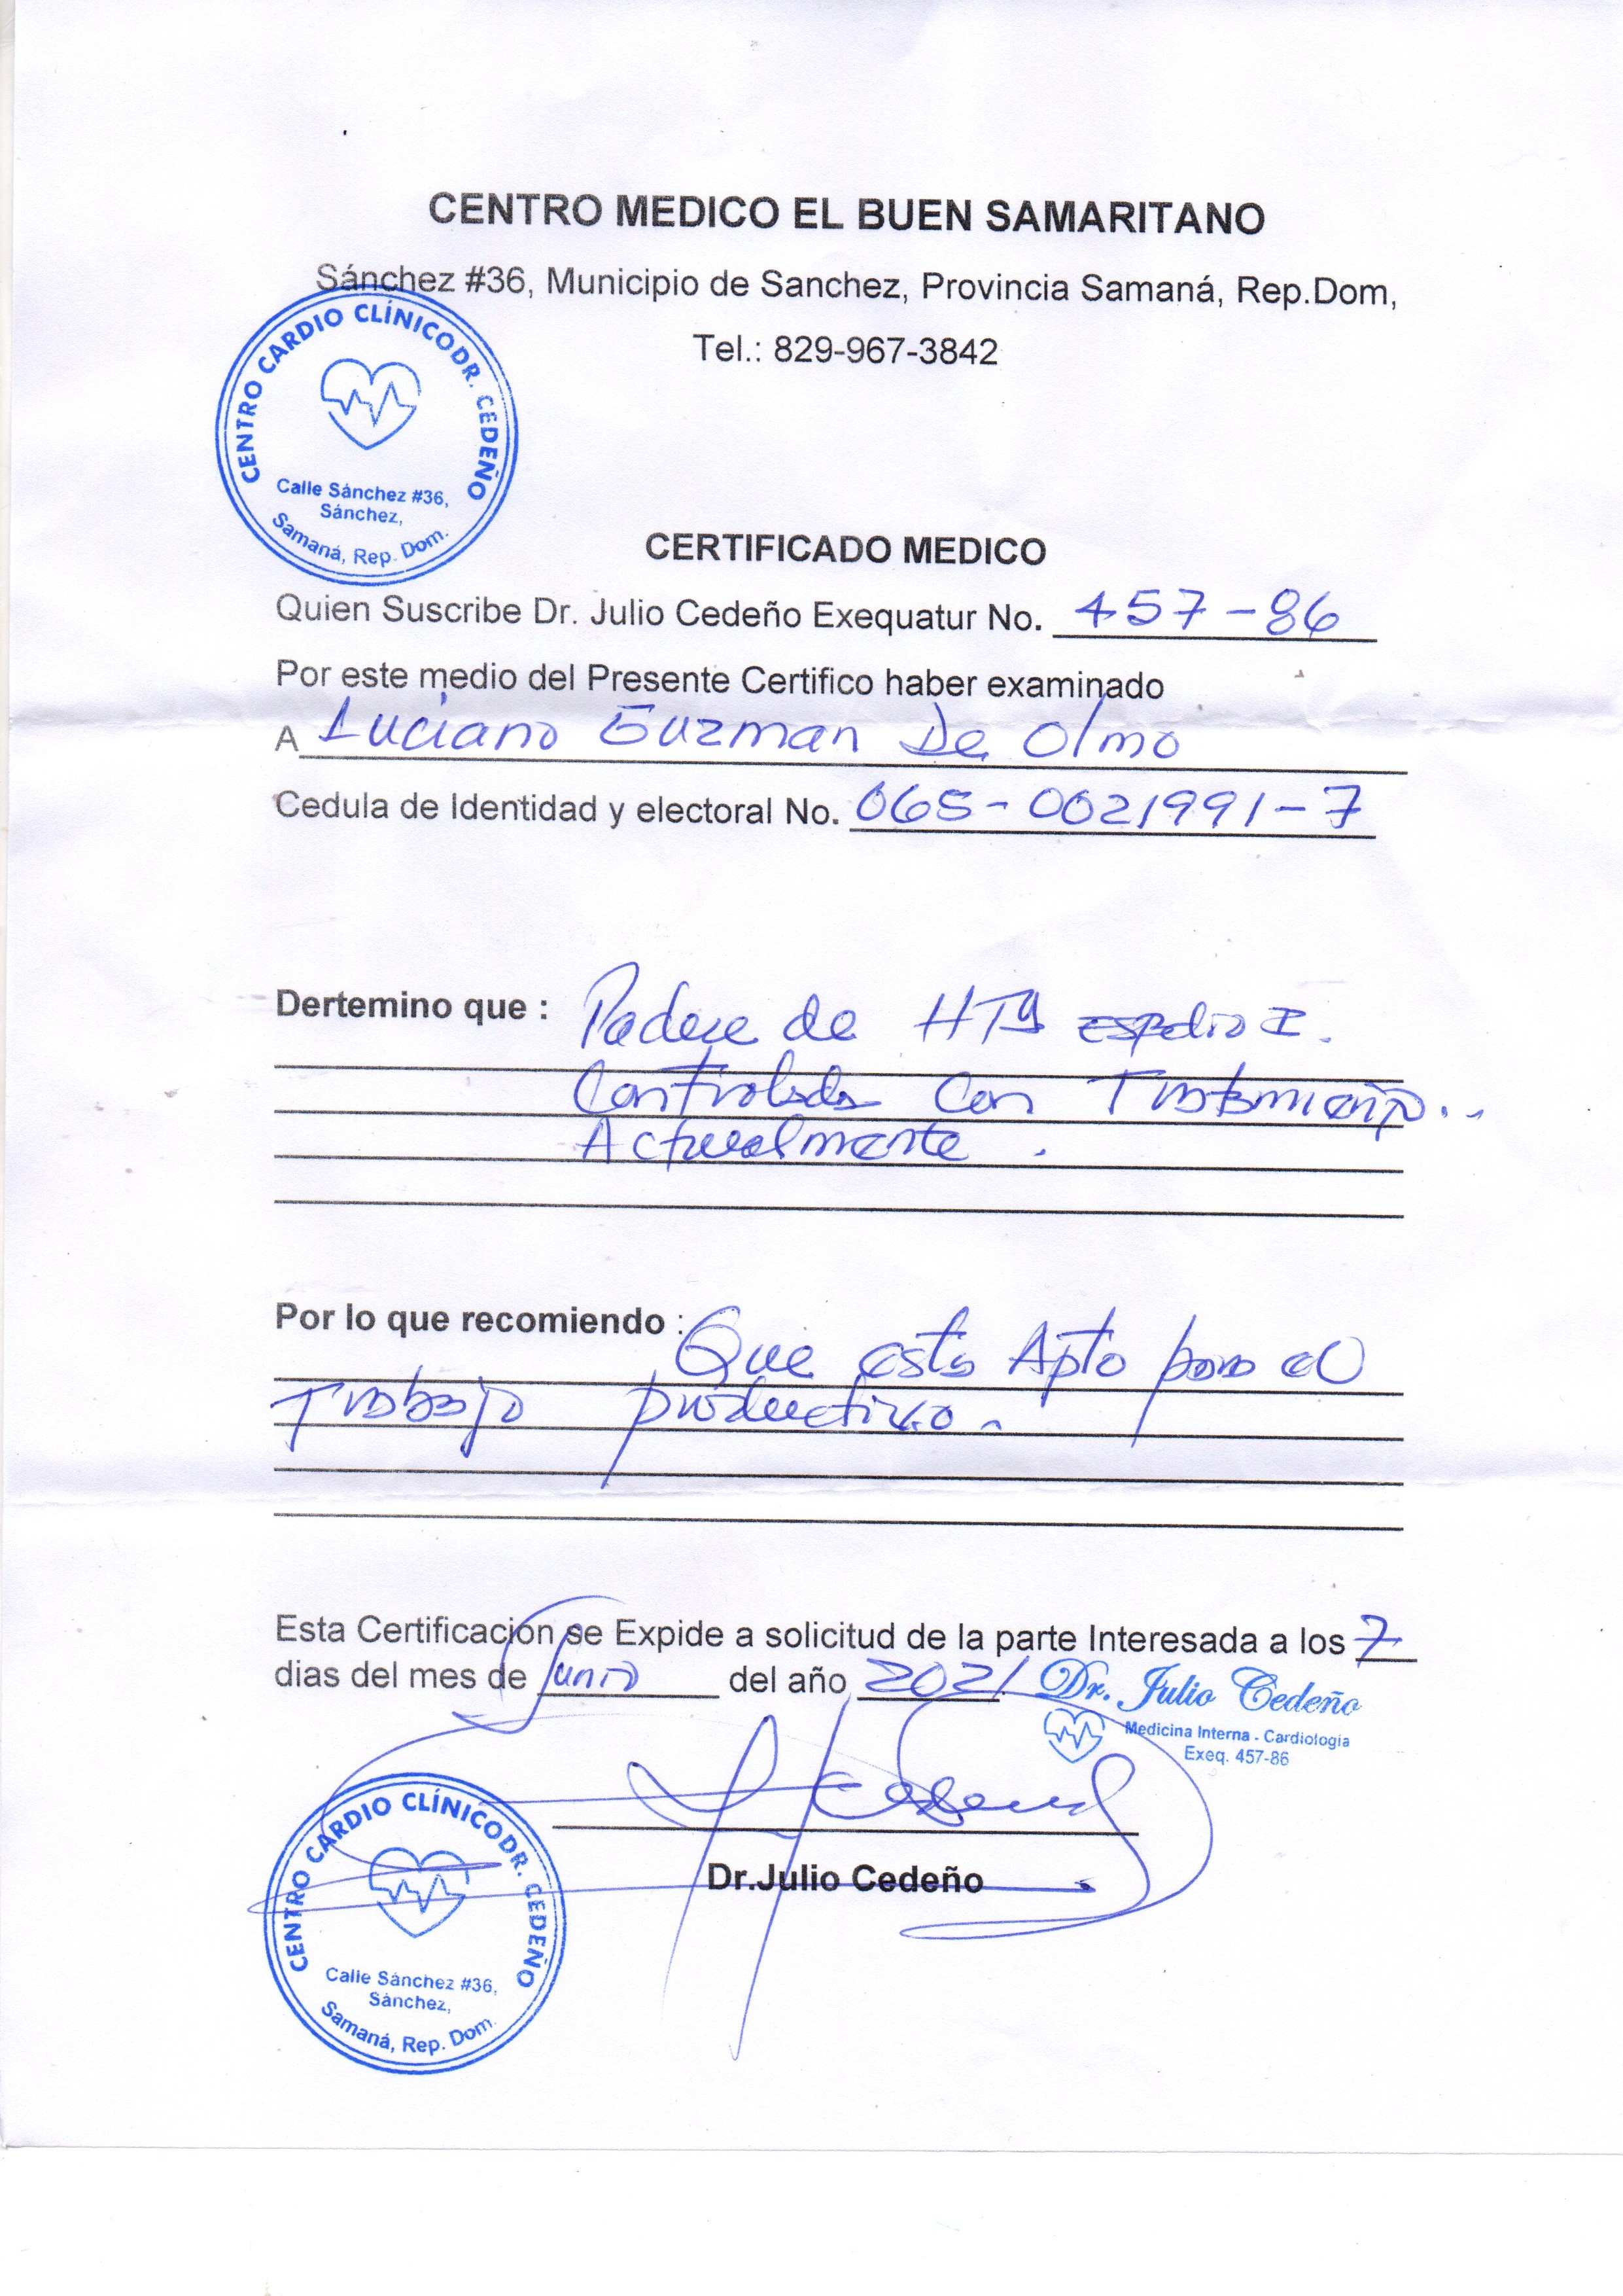 CENTRO MEDICO EL BUEN SAMARITANO
Sánchez #36, Municipio de Sanchez, Provincia Samaná, Rep.Dom,
Tel.: 829-967-3842
CENTRO CARDIO CLÍNICO DR. CEDEÑO
Calle Sánchez #36,
Sánchez,
Samaná, Rep. Dom.
CERTIFICADO MEDICO
Quien Suscribe Dr. Julio Cedeño Exequatur No. 457-86
Por este medio del Presente Certifico haber examinado
A Luciano Guzman De Olmo
Cedula de Identidad y electoral No. 065-0021991-7
Dertemino que : Padece de HTA I.
Controlada Con Tratamiento..
Actualmente .
Por lo que recomiendo : Que esta Apto para el
Trabajo productivo.
Esta Certificación se Expide a solicitud de la parte Interesada a los 7
dias del mes de Junio del año 2021
Dr. Julio Cedeño
Medicina Interna - Cardiologia
Exeq. 457-86
Dr.Julio Cedeño
CENTRO CARDIO CLÍNICO DR. CEDEÑO
Calle Sánchez #36,
Sánchez,
Samaná, Rep. Dom.